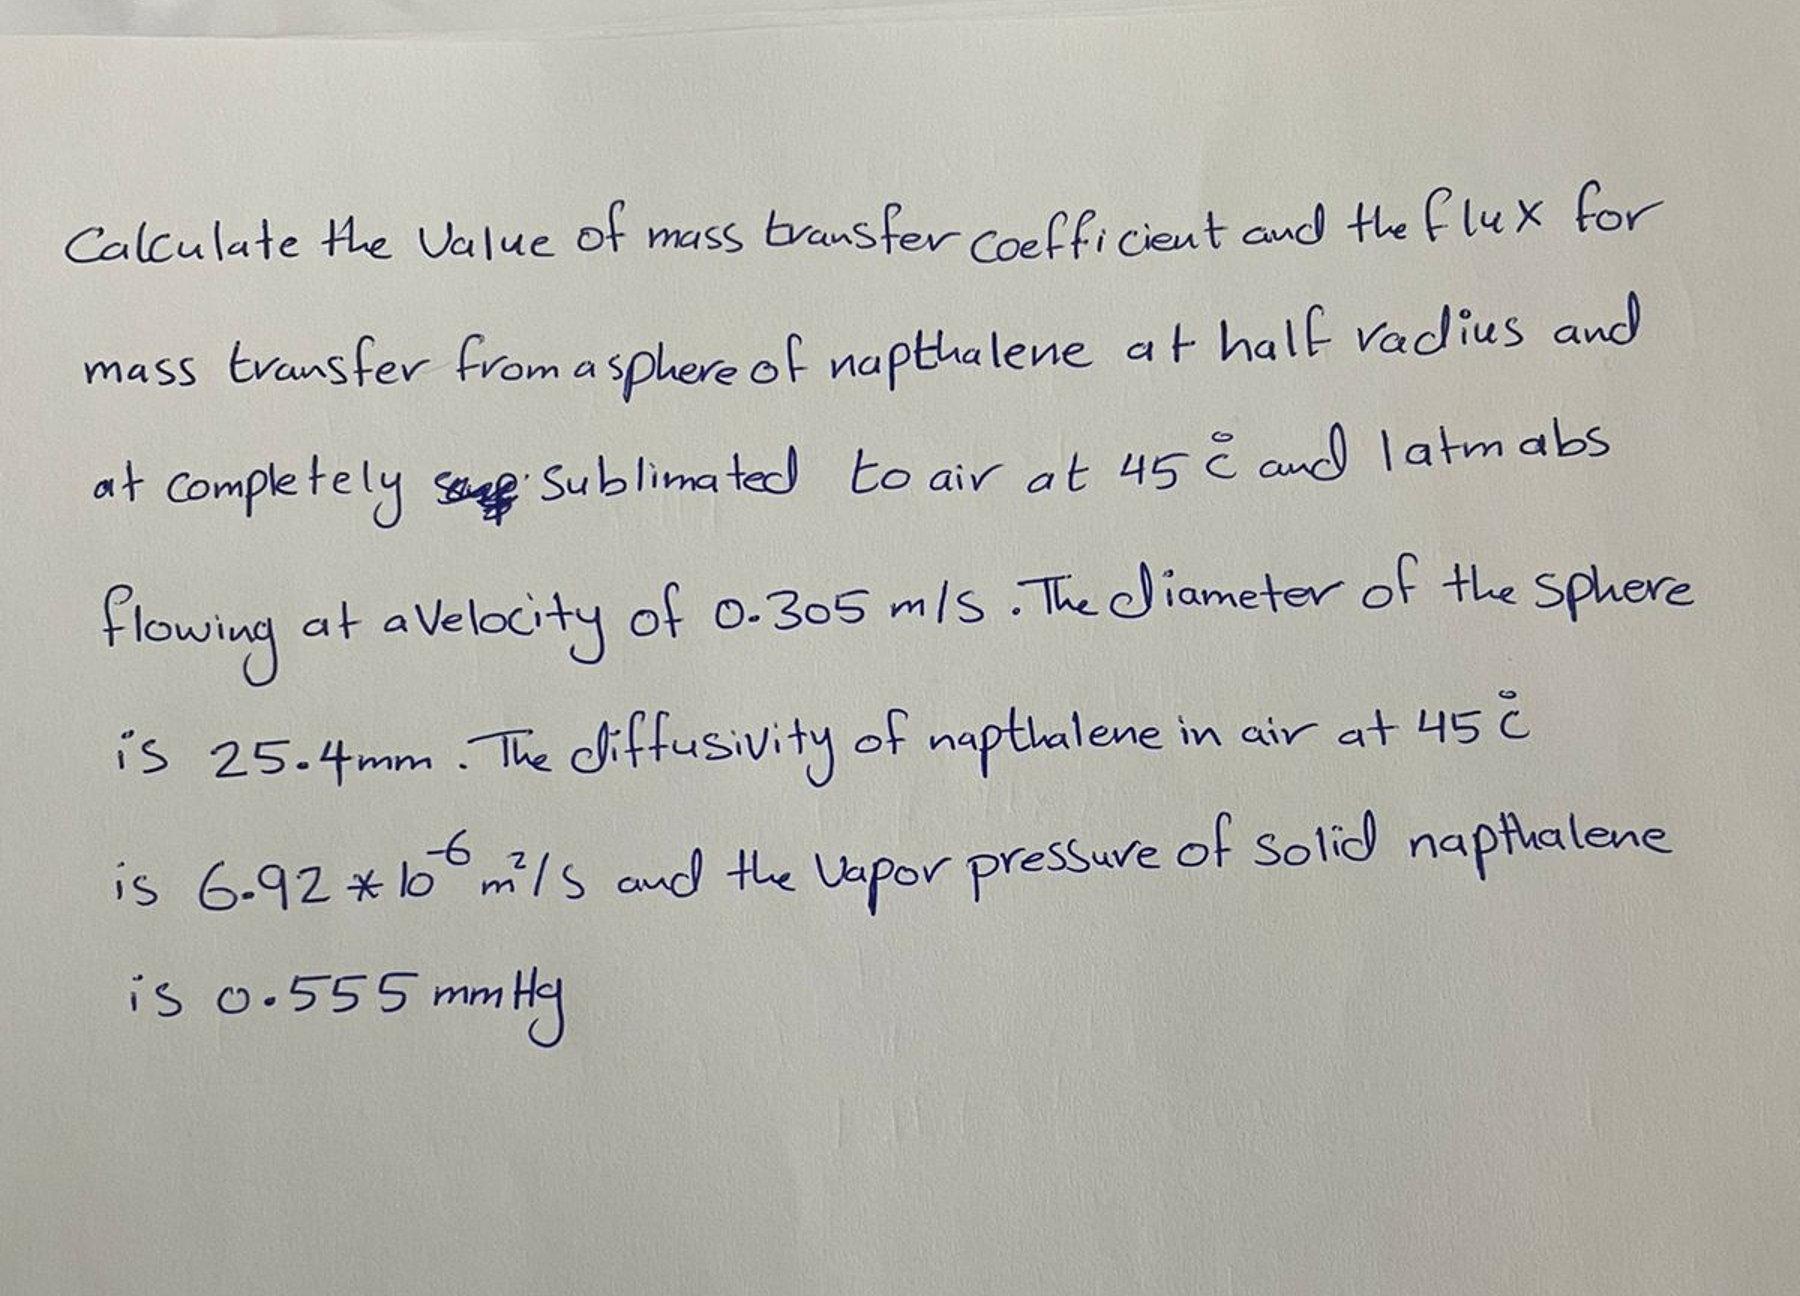 Calculate the Value of mass transfer coefficient and the flux for
mass transfer from a sphere of napthalene at half radius and
at completely sublimated to air at 45 °C and 1 atm abs
flowing at a velocity of 0.305 m/s. The diameter of the sphere
is 25.4mm. The diffusivity of napthalene in air at 45 °C
is 6.92 * 10⁻⁶ m²/s and the Vapor pressure of solid napthalene
is 0.555 mmHg